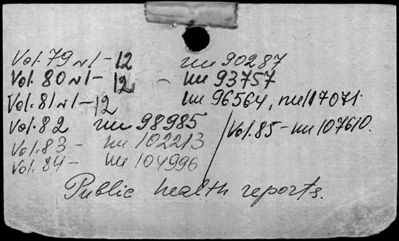 Vol. 79 N1-12 ии 90287
Vol. 80 N1-12 ии 93757
Vol. 81 N1-12 ии 96564, ии 117071
Vol. 82 ии 98985
Vol. 83 - ии 102213
Vol. 84 - ии 104996
Vol. 85 - ии 107610.
Public health reports.